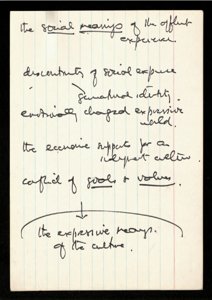 the social meanings of the affluent
experience
discontinuity of social experience
generational identity
emotionally charged expressive
world.
the economic supports for an
culture
conflict of goals & values.
the expressive meanings.
of the culture.